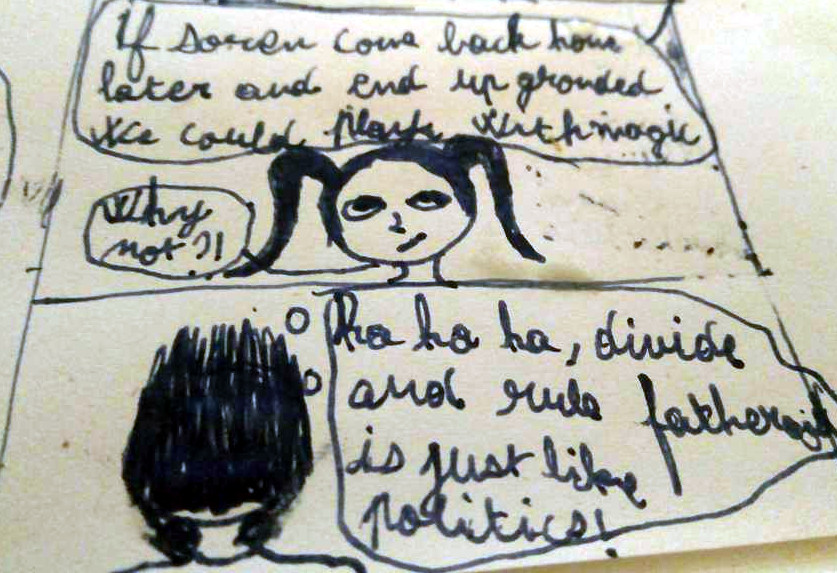 If soren come back home
later and end up grounded
We could play with magic
Why
not?!
ha ha ha, divide
and rule
is just like
politics!